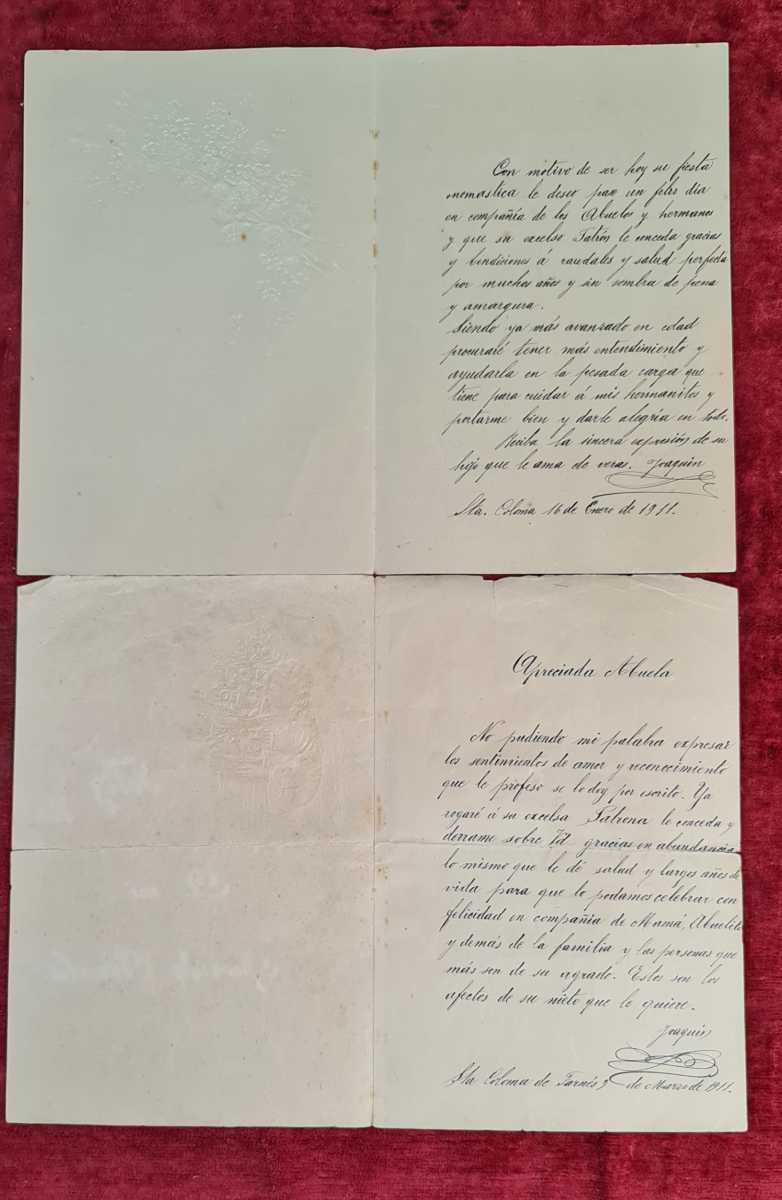 Con motivo de ser hoy su fiesta
nomastica le deseo pase un feliz dia
en compañía de los Abuelos y hermanos
y que su excelso Patrón le conceda gracias
y bendiciones á raudales y salud perfecta
por muchos años y sin sombra de pena
y amargura.
Siendo ya más avanzado en edad
procuraré tener más entendimiento y
ayudarla en la pesada carga que
tiene para cuidar á mis hermanitos y
portarme bien y darle alegría en todo.
Reciba la sincera expresión de su
hijo que le ama de veras. Joaquin
Sta. Coloma 16 de Enero de 1911.
Apreciada Abuela
No pudiendo mi palabra expresar
los sentimientos de amor y reconocimiento
que le profeso se lo doy por escrito. Ya
rogaré á su excelsa Patrona le conceda y
derrame sobre Vd. gracias en abundancia
lo mismo que le dé salud y largos años de
vida para que lo podamos celebrar con
felicidad en compañía de Mamá, Abuelito
y demás de la familia y las personas que
más son de su agrado. Estos son los
afectos de su nieto que le quiere.
Joaquin
Sta Coloma de Farnés 9 de Marzo de 1911.